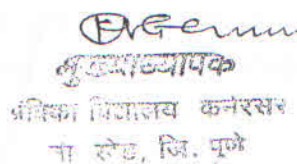 मुख्याध्यापक
अंबिका विद्यालय कनेरसर
ता खेड, जि. पुणे